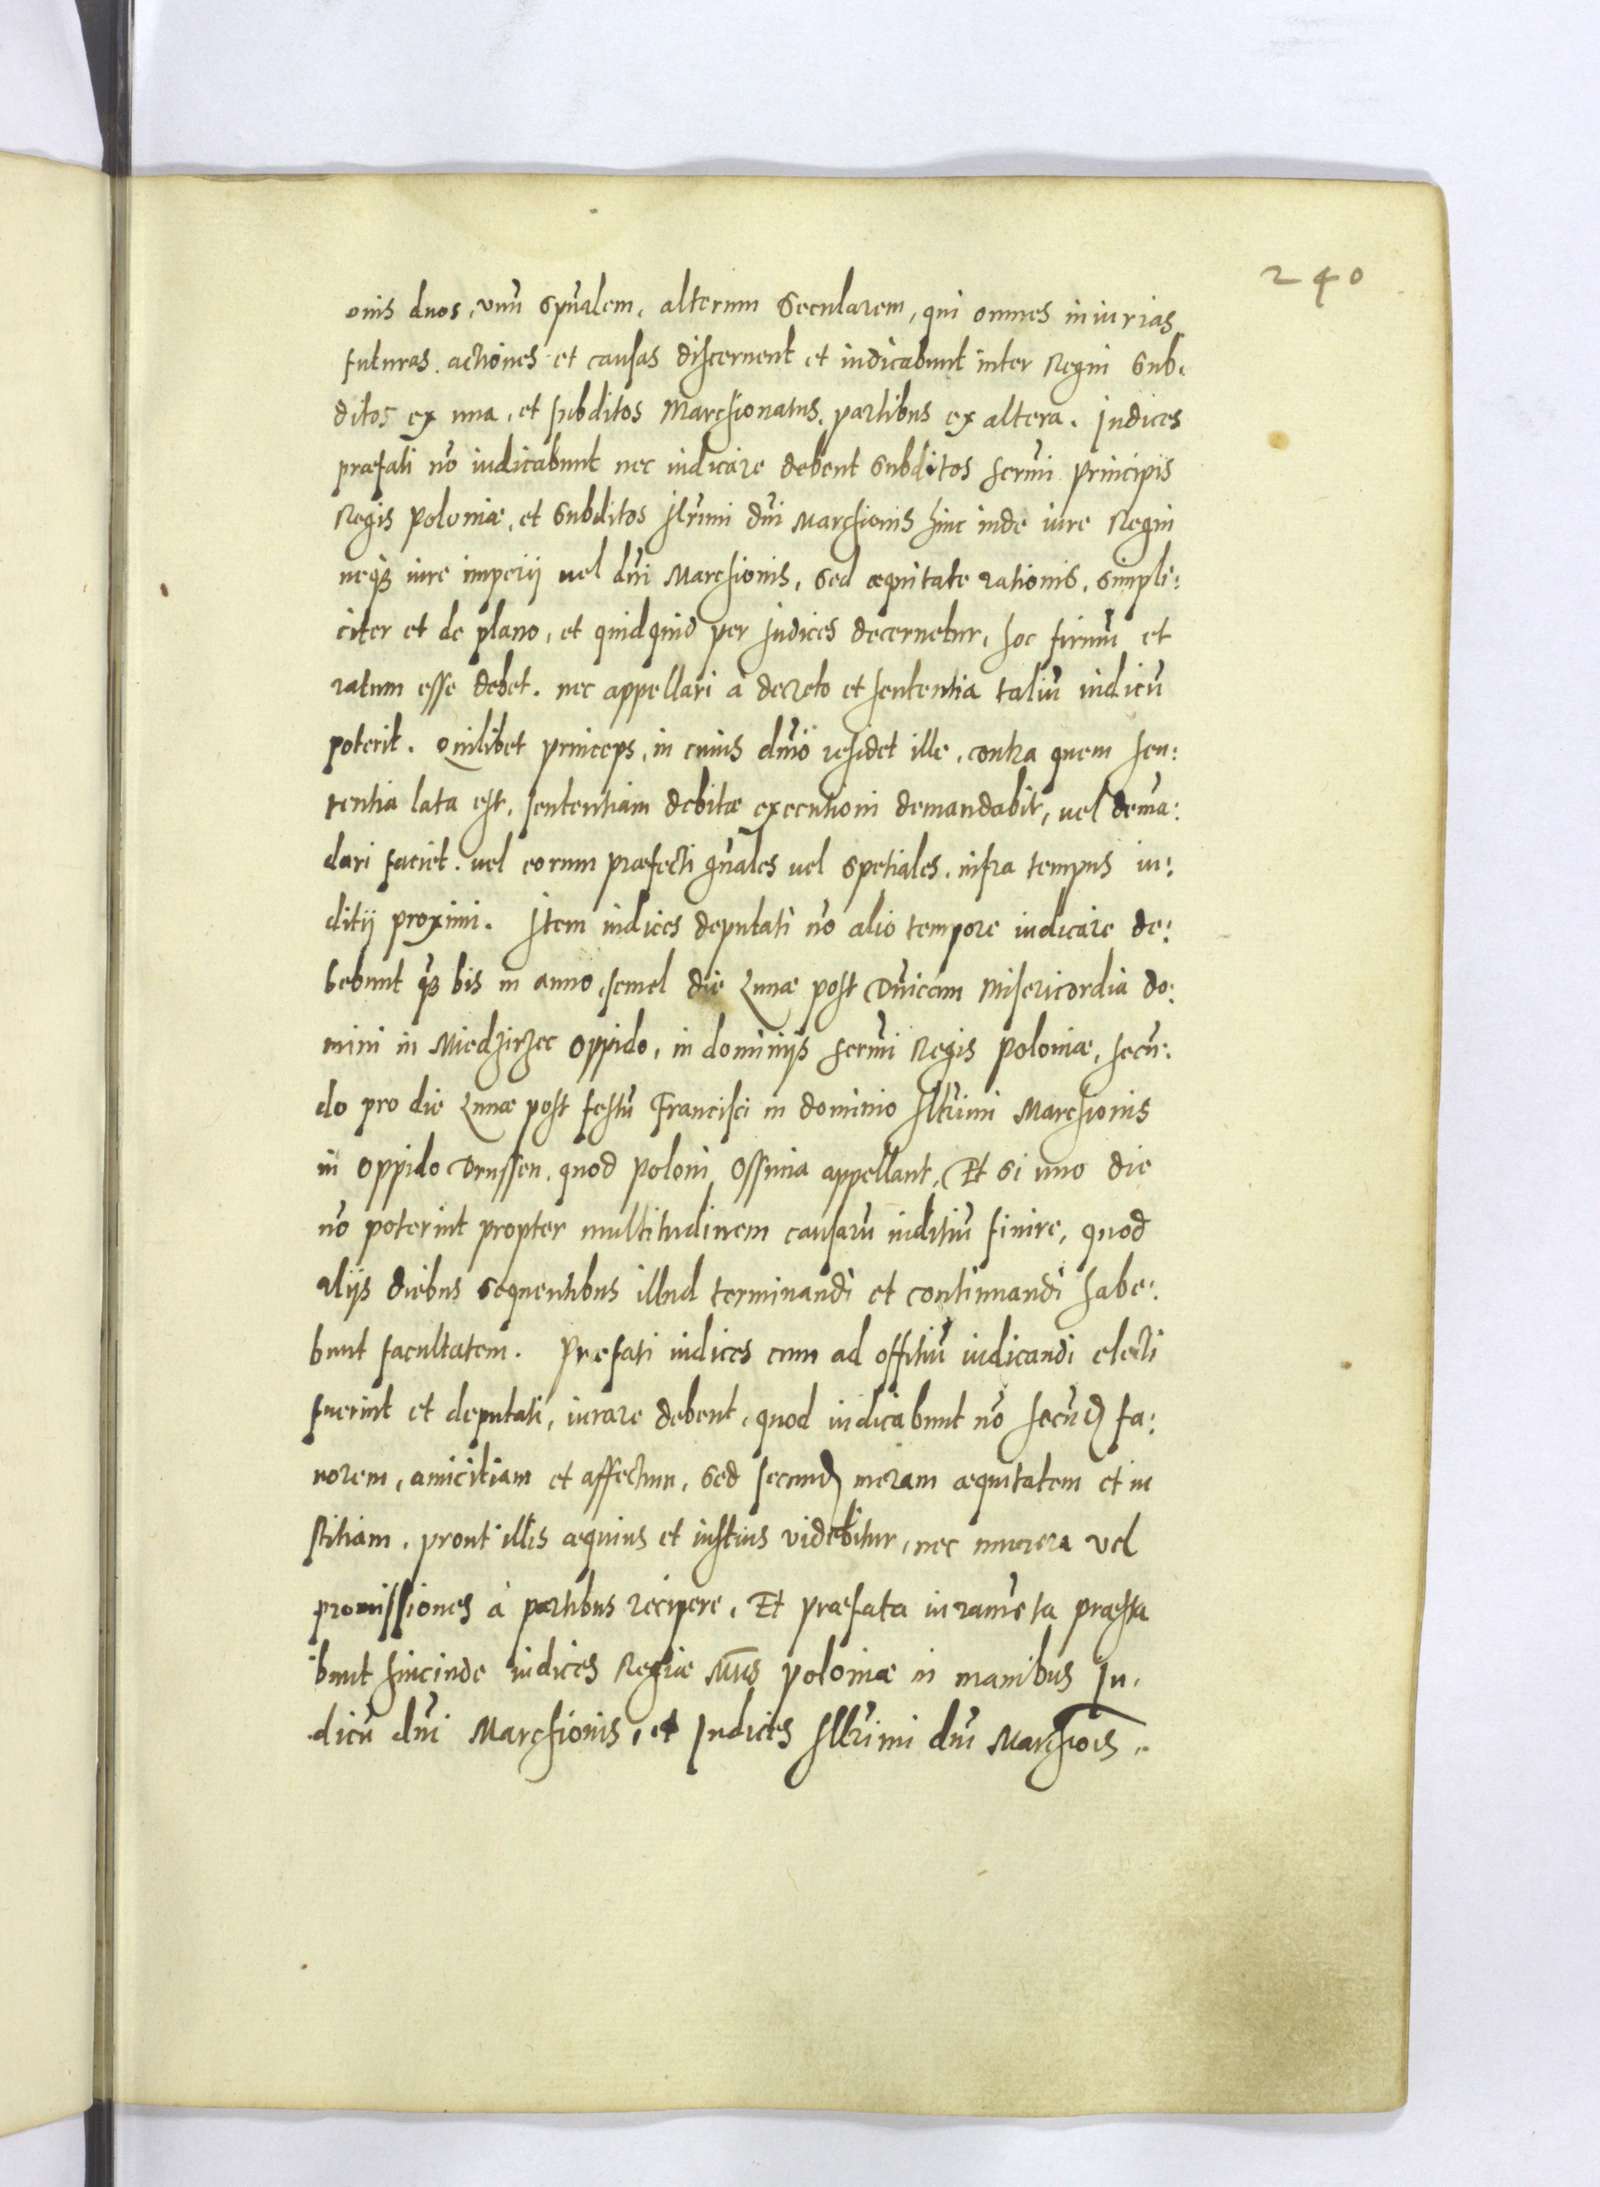 240
onis duos, vnū spūalem, alterum Secularem, qui omnes iniurias
futuras. actiones et causas discernent et iudicabunt inter Regni Sub-
ditos ex una, et subditos Marchionatus, partibus ex altera. Iudices
praefati nō iudicabunt nec iudicare debent Subditos sermi Principis
Regis Poloniae, et Subditos Illrimi dni Marchionis hinc inde iure Regni
neqȝ iure imperij uel dni Marchionis, Sed aequitate rationis, simpli:
citer et de plano, et quidquid per Iudices decernetur, hoc firmū et
ratum esse debet. nec appellari à decreto et sententia taliū iudicū
poterit. Quilibet Princeps, in cuius dnio residet ille, contra quem sen:
tentia lata est, sententiam debitae executioni demandabit, uel demā:
dari faciet. uel eorum praefecti gn̄ales uel Spetiales, infra tempus iu:
ditij proximi. Item iudices deputati nō alio tempore iudicare de:
bebunt qȝ bis in anno, semel die Lunae post Dnīcam Misericordia do:
mini in Miedzirzec oppido, in dominijs sermi Regis Poloniae, secū:
do pro die Lunae post festū Francisci in dominio Illrimi Marchionis
in oppido Drussen, quod Poloni Ossnia appellant, Et Si uno die
nō poterint propter multitudinem causarū iuditiū finire, quod
alijs diebus Sequentibus illud terminandi et continuandi habe:
bunt facultatem. Prefati iudices cum ad offitiū iudicandi electi
fuerint et deputati, iurare debent, quod iudicabunt nō secūd fa:
uorem, amicitiam et affectum, Sed secund meram aequitatem et iu
stitiam, prout illis aequius et iustius videbitur, nec munera vel
promissiones à partibus recipere, Et praefata iuramēta praesta
bunt hincinde iudices Regiae Mtis Poloniae in manibus Iu-
dicū dni Marchionis, et Iudices Illrimi dni Marchiois.